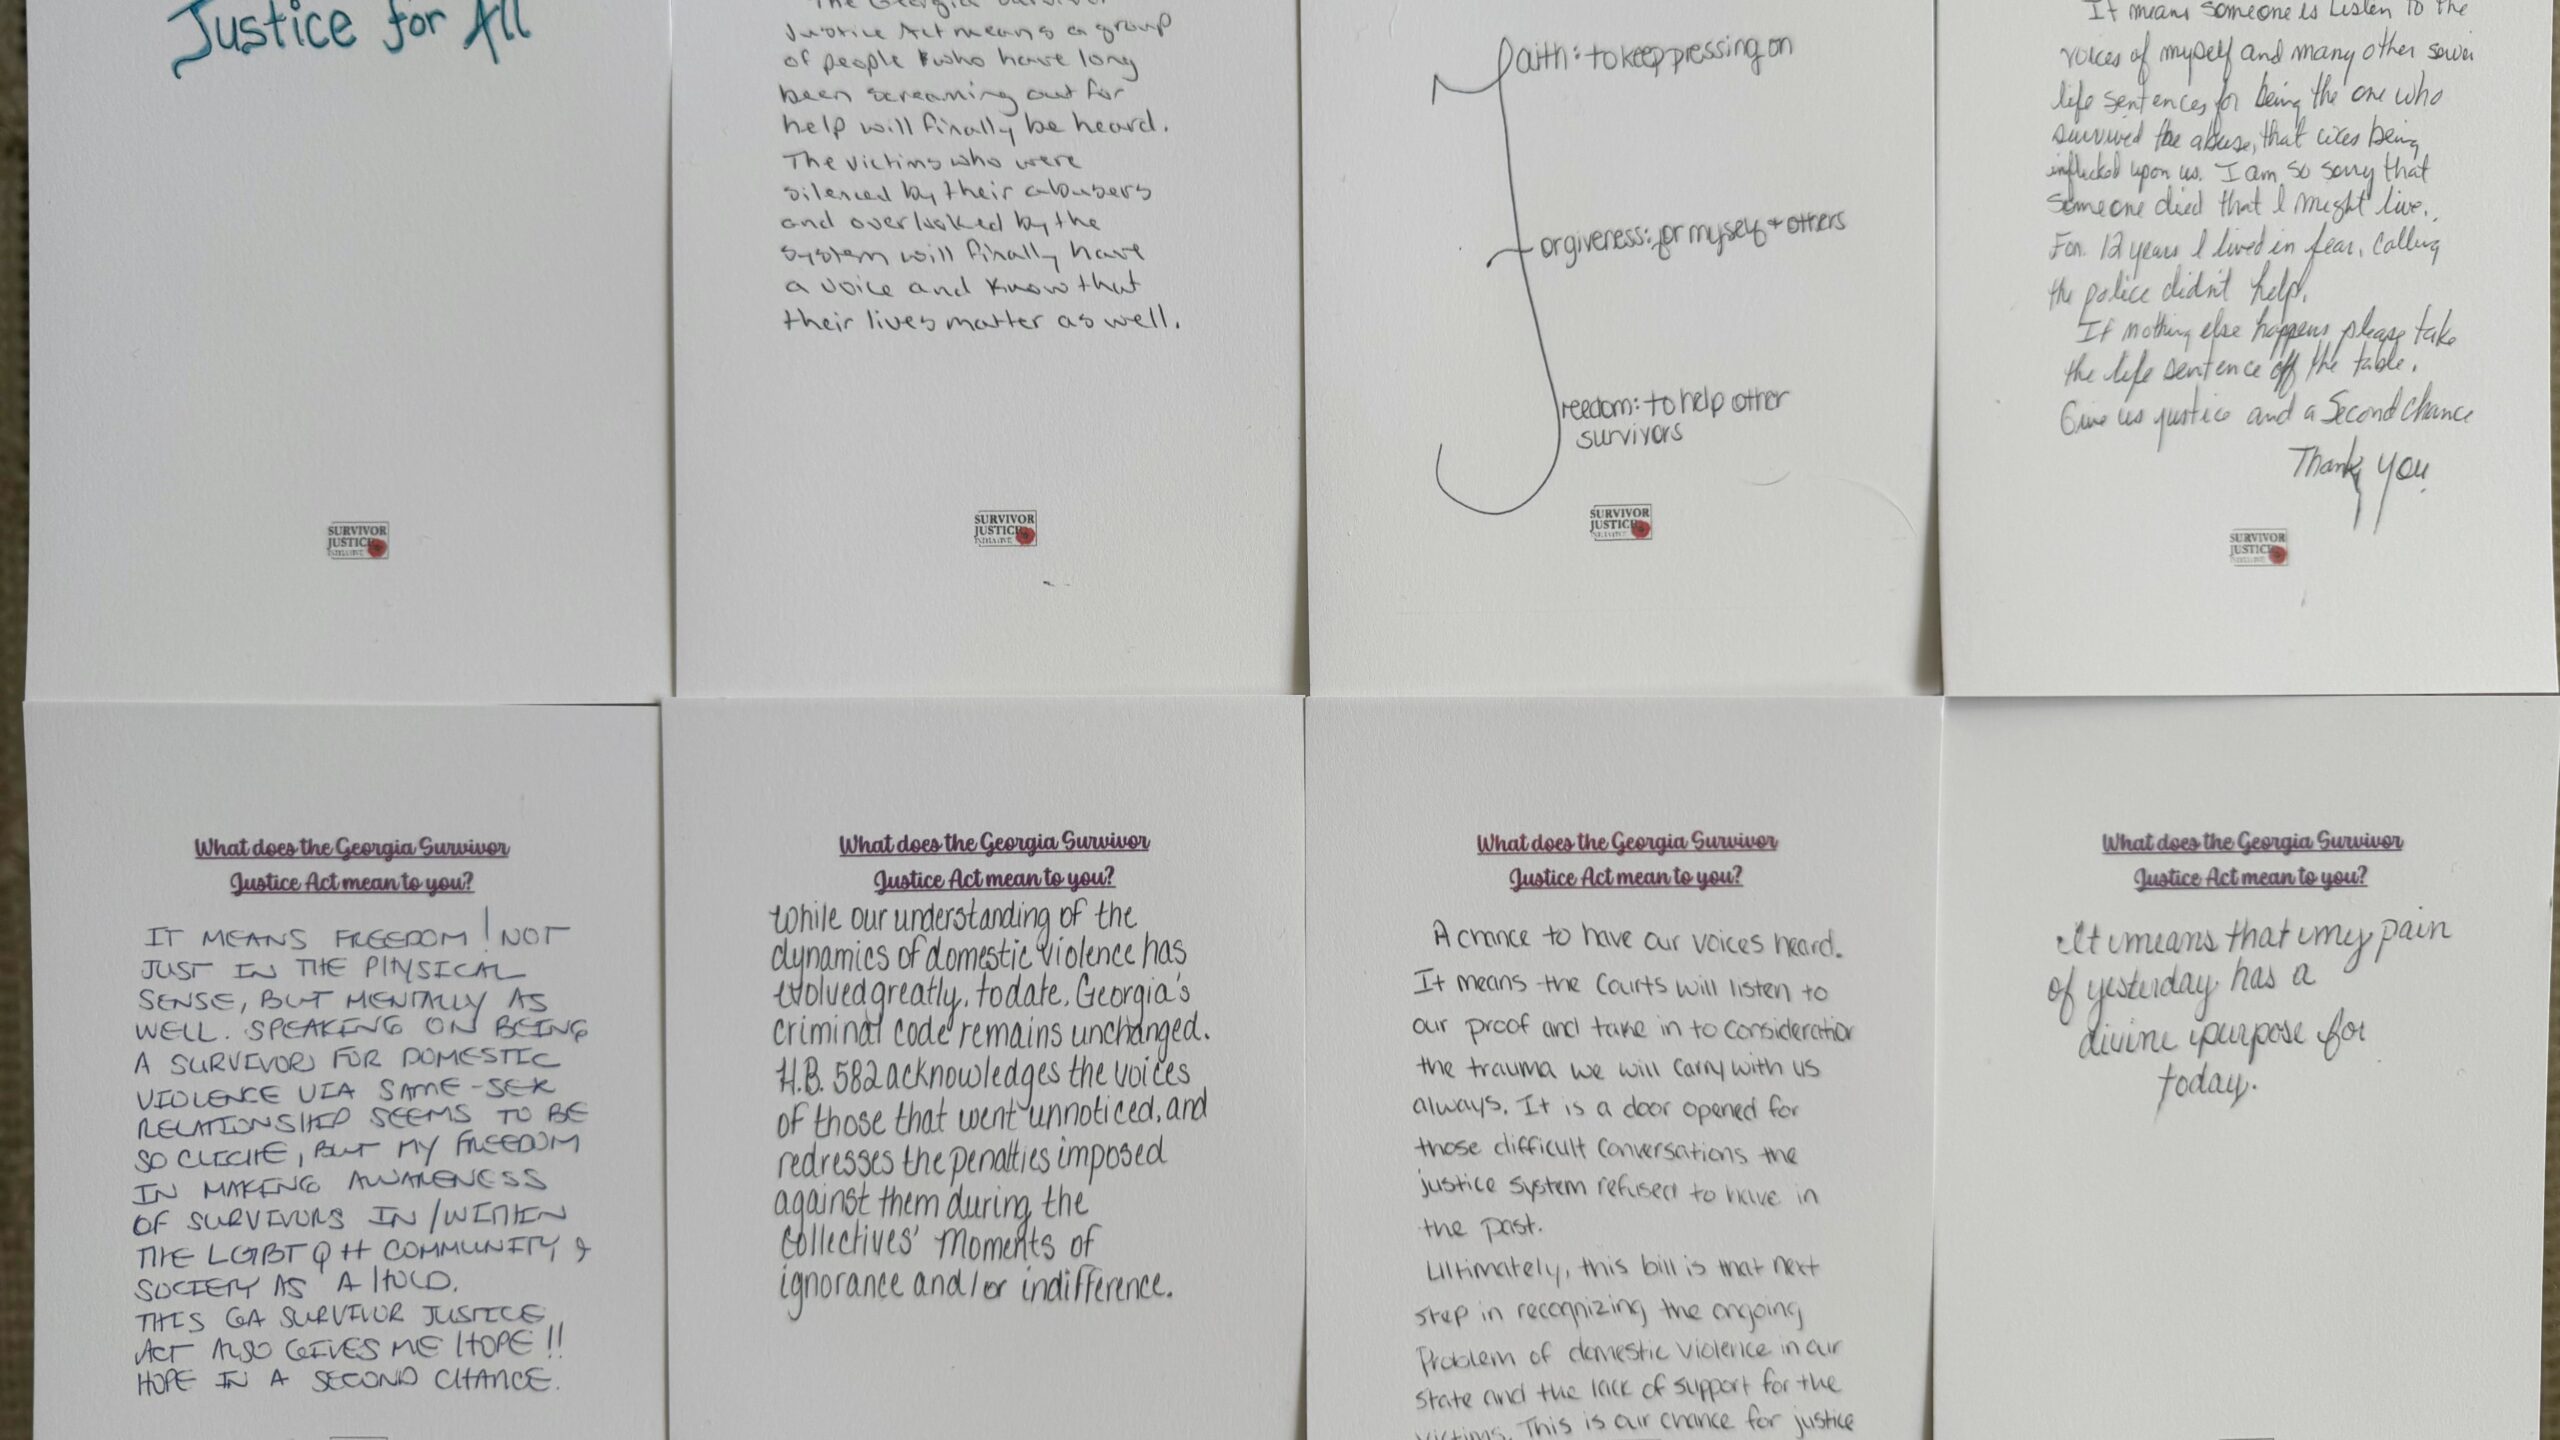 Justice for All
SURVIVOR
JUSTICE
INITIATIVE
The Georgia Survivor
Justice Act means a group
of people who have long
been screaming out for
help will finally be heard.
The victims who were
silenced by their abusers
and overlooked by the
system will finally have
a voice and know that
their lives matter as well.
SURVIVOR
JUSTICE
INITIATIVE
Faith: to keep pressing on
Forgiveness: for myself + others
Freedom: to help other
survivors
SURVIVOR
JUSTICE
INITIATIVE
It means someone is Listen to the
voices of myself and many other
life sentences for being the one who
survived the abuse, that was being
inflicted upon us. I am so sorry that
someone died that I might live.
For 12 years I lived in fear, Calling
the police didn't help.
If nothing else happens please take
the life sentence off the table.
Give us justice and a Second chance
Thank you
SURVIVOR
JUSTICE
INITIATIVE
What does the Georgia Survivor
Justice Act mean to you?
IT MEANS FREEDOM! NOT
JUST IN THE PHYSICAL
SENSE, BUT MENTALLY AS
WELL. SPEAKING ON BEING
A SURVIVOR FOR DOMESTIC
VIOLENCE VIA SAME-SEX
RELATIONSHIP SEEMS TO BE
SO CLICHE, BUT MY FREEDOM
IN MAKING AWARENESS
OF SURVIVORS IN/WITHIN
THE LGBTQ++ COMMUNITY &
SOCIETY AS A HOLD.
THIS GA SURVIVOR JUSTICE
ACT ALSO GIVES ME HOPE!!
HOPE IN A SECOND CHANCE.
What does the Georgia Survivor
Justice Act mean to you?
While our understanding of the
dynamics of domestic violence has
evolved greatly, to date, Georgia's
criminal code remains unchanged.
H.B. 582 acknowledges the voices
of those that went unnoticed, and
redresses the penalties imposed
against them during the
collectives' moments of
ignorance and/or indifference.
What does the Georgia Survivor
Justice Act mean to you?
A chance to have our voices heard.
It means the Courts will listen to
our proof and take in to consideration
the trauma we will carry with us
always. It is a door opened for
those difficult conversations the
justice system refused to have in
the past.
Ultimately, this bill is that next
step in recognizing the ongoing
Problem of domestic violence in our
state and the lack of support for the
victims. This is our chance for justice
What does the Georgia Survivor
Justice Act mean to you?
It means that my pain
of yesterday has a
divine purpose for
today.